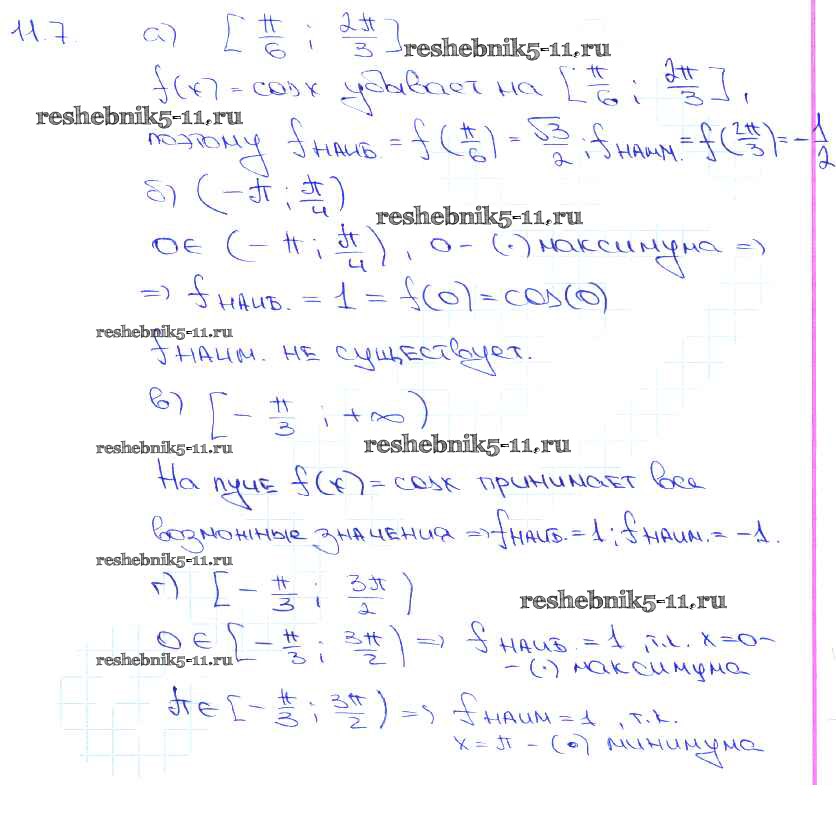 11.7. а) [π/6 ; 2π/3]
reshebnik5-11.ru
f(x) = cosx убывает на [π/6 ; 2π/3],
reshebnik5-11.ru
поэтому fнаиб. = f(π/6) = √3/2 ; fнаим. = f(2π/3) = -1/2
б) (-π ; π/4)
reshebnik5-11.ru
0 ∈ (-π ; π/4), 0 - (·) максимума =>
=> fнаиб. = 1 = f(0) = cos(0)
reshebnik5-11.ru
fнаим. не существует.
в) [-π/3 ; +∞)
reshebnik5-11.ru reshebnik5-11.ru
На луче f(x) = cosx принимает все
возможные значения => fнаиб. = 1 ; fнаим. = -1.
reshebnik5-11.ru
г) [-π/3 ; 3π/2)
reshebnik5-11.ru
0 ∈ [-π/3 ; 3π/2) => fнаиб. = 1, т.к. x=0-
reshebnik5-11.ru
- (·) максимума
π ∈ [-π/3 ; 3π/2) => fнаим = 1, т.к.
x = π - (·) минимума